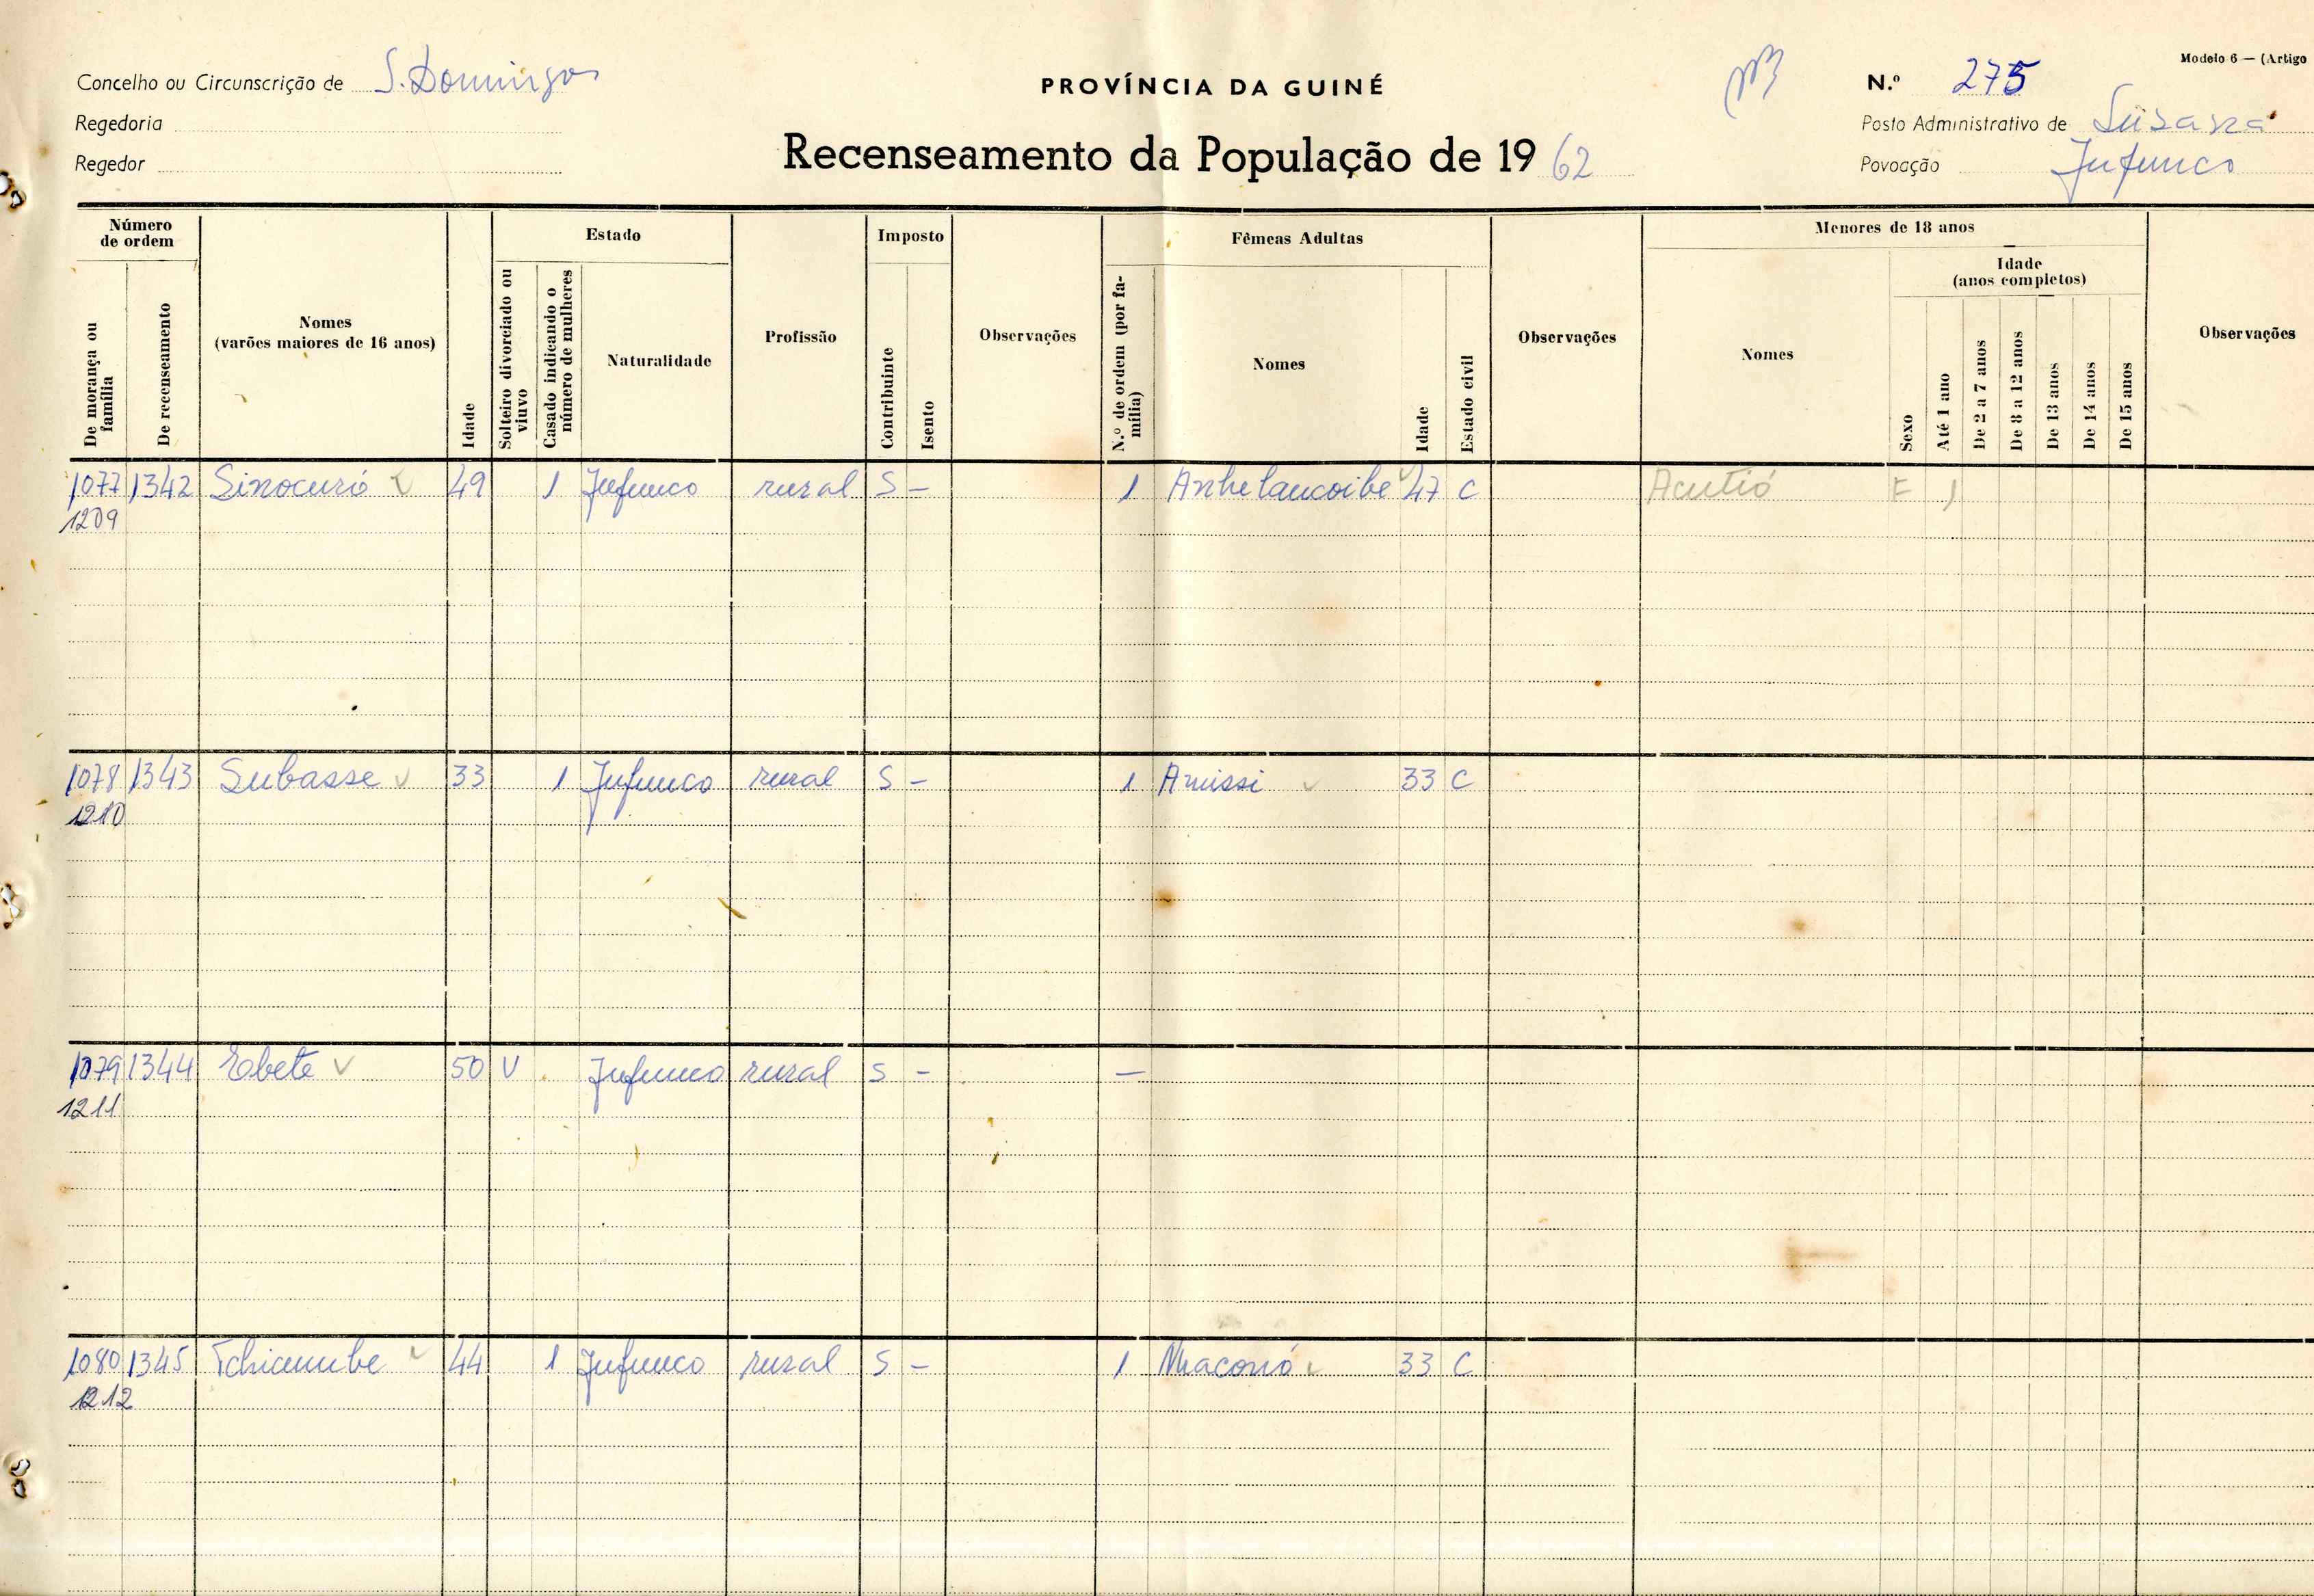 Modelo 6 — (Artigo
Concelho ou Circunscrição de S. Domingos
PROVÍNCIA DA GUINÉ
N.º 275
Regedoria
Posto Administrativo de Susana
Regedor
Recenseamento da População de 1962
Povoação Jufunco
Número de ordem
De morança ou família
De recenseamento
Nomes (varões maiores de 16 anos)
Idade
Estado
Solteiro divorciado ou viuvo
Casado indicando o número de mulheres
Naturalidade
Profissão
Imposto
Contribuinte
Isento
Observações
Fêmeas Adultas
N.º de ordem (por família)
Nomes
Idade
Estado civil
Observações
Menores de 18 anos
Nomes
Sexo
Idade (anos completos)
Até 1 ano
De 2 a 7 anos
De 8 a 12 anos
De 13 anos
De 14 anos
De 15 anos
Observações
1077 1342 Sinocuró 49 1 Jufunco rural S – 1 Anhelancoibe 47 C Acutió F 1
1209
1078 1343 Subasse 33 1 Jufunco rural S – 1 Amissi 33 C
1210
1079 1344 Ebete 50 V Jufunco rural S – –
1211
1080 1345 Tchiambe 44 1 Jufunco rural S – 1 33 C
1212